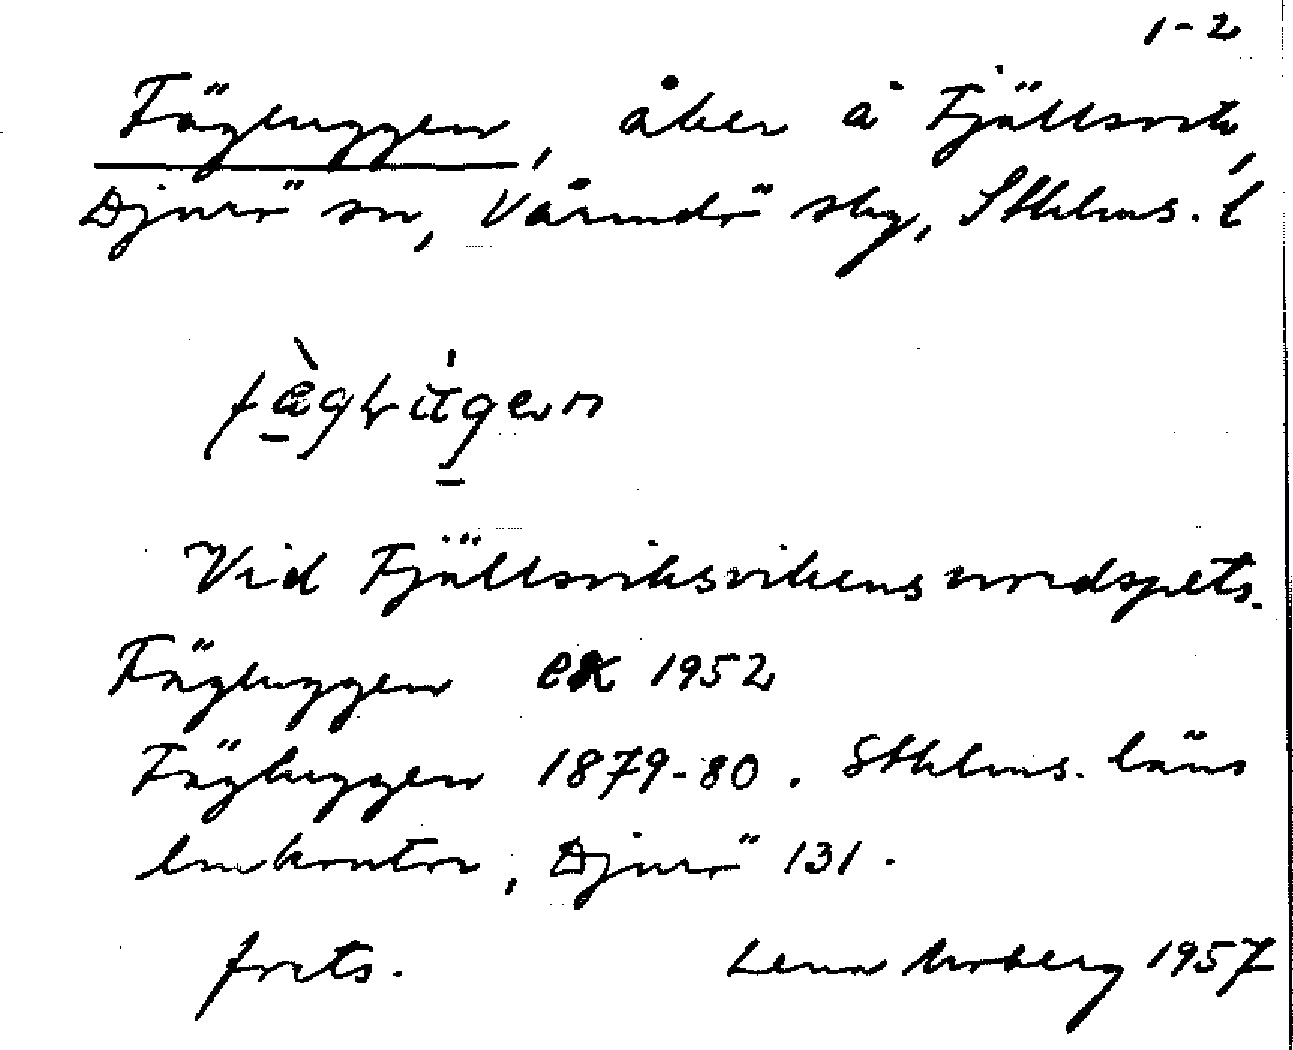 1-2
Fägluggen, åker å Fjällsvik,
Djurö sn, Värmdö sky, Sthlms. l
Vid Fjällsviksvikens nordspets.
Fägluggen ek 1952
Fägluggen 1879-80. Sthlms. läns
lmkontor, Djurö 131.
forts. Lena Moberg 1957